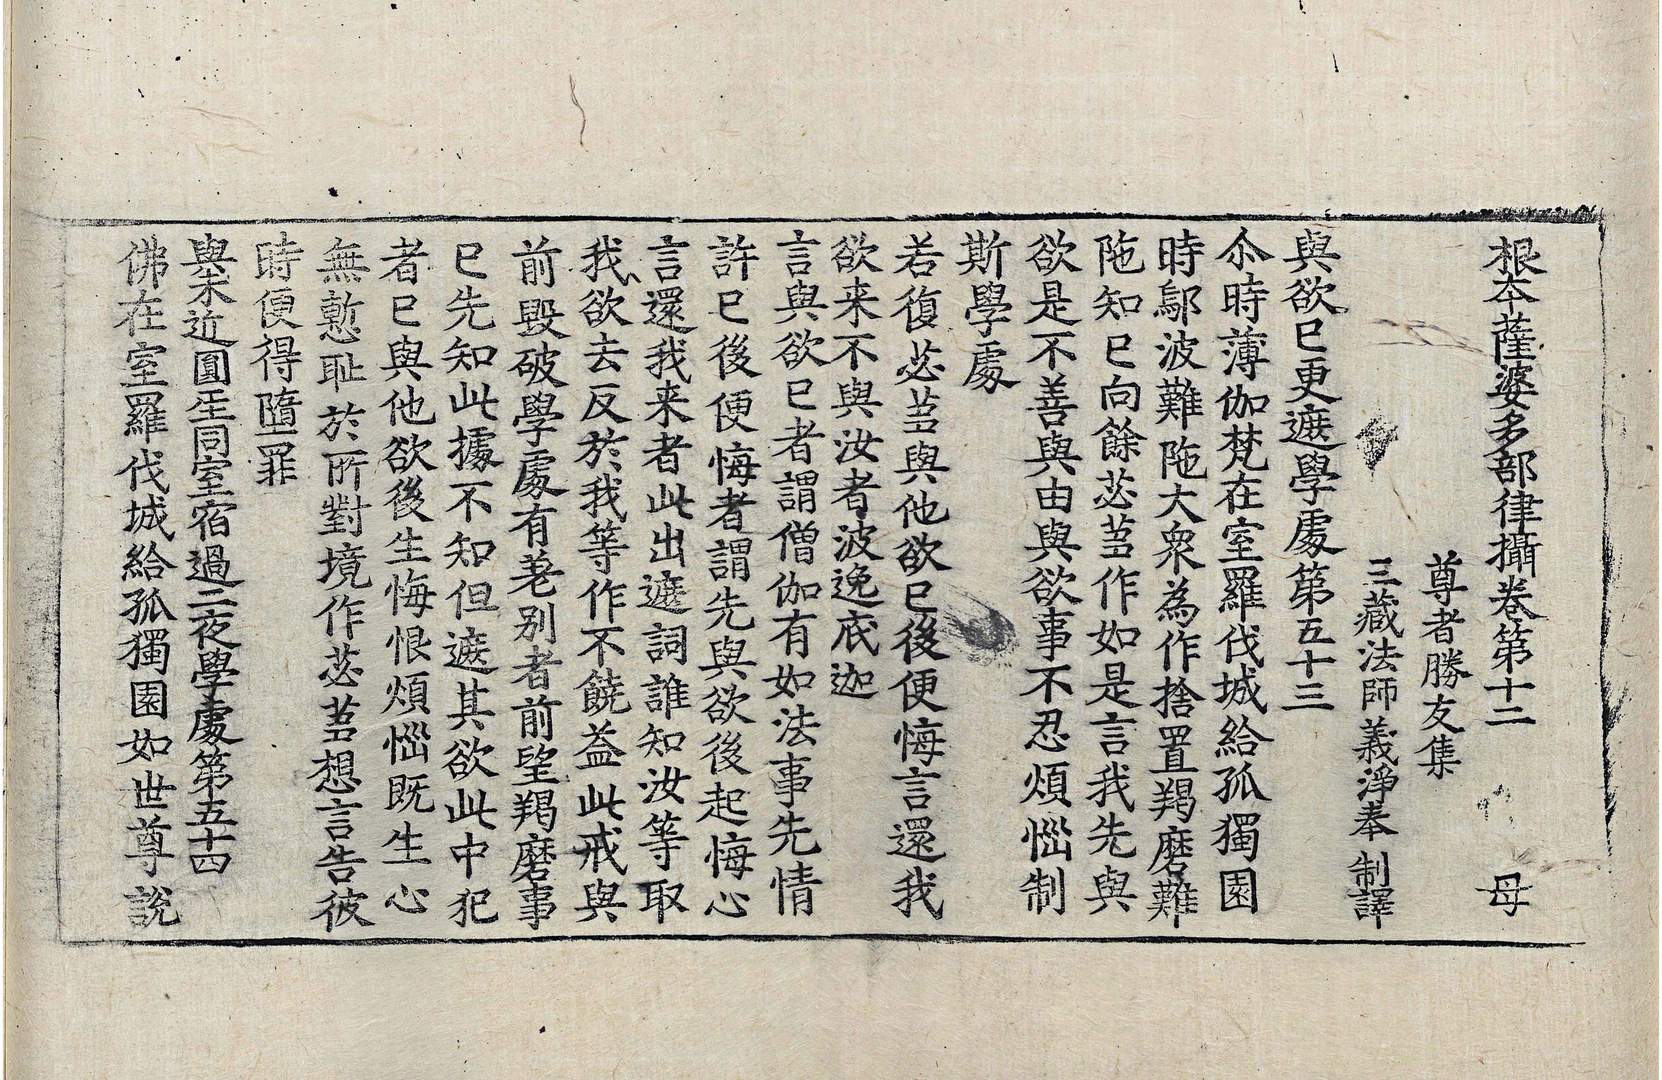 根本薩婆多部律攝卷第十二　母
尊者勝友集
三藏法師義淨奉　制譯
與欲已更遮學處第五十三
尒時薄伽梵在室羅伐城給孤獨園
時鄔波難陁大衆為作捨置羯磨難
陁知已向餘苾芻作如是言我先與
欲是不善與由與欲事不忍煩惱制
斯學處
若復苾芻與他欲已後便悔言還我
欲来不與汝者波逸底迦
言與欲已者謂僧伽有如法事先情
許已後便悔者謂先與欲後起悔心
言還我来者此出遮詞誰知汝等取
我欲去反於我等作不饒益此戒與
前毀破學處有差别者前望羯磨事
已先知此據不知但遮其欲此中犯
者已與他欲後生悔恨煩惱既生心
無慙耻於所對境作苾芻想言告彼
時便得墮罪
與未近圓人同室宿過二夜學處第五十四
佛在室羅伐城給孤獨園如世尊說